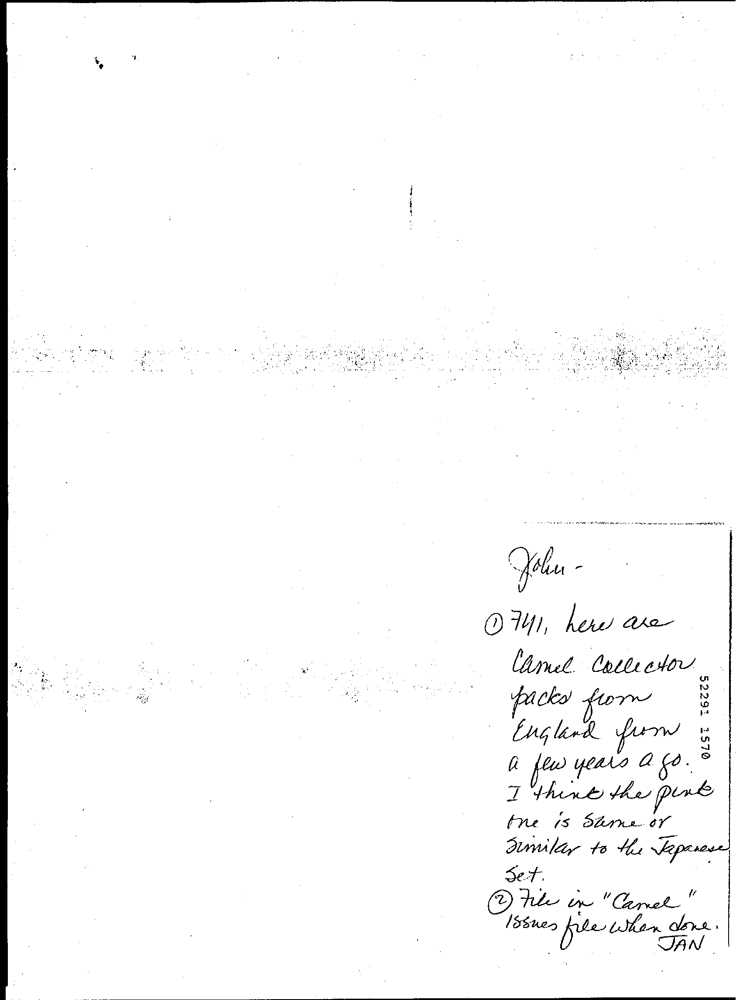 John -
① FYI, here are
Camel Collector
packs from
England from
a few years ago.
I think the pink
one is same or
similar to the Japanese
Set.
② File in "Camel"
Issues file when done.
JAN
52291 1570